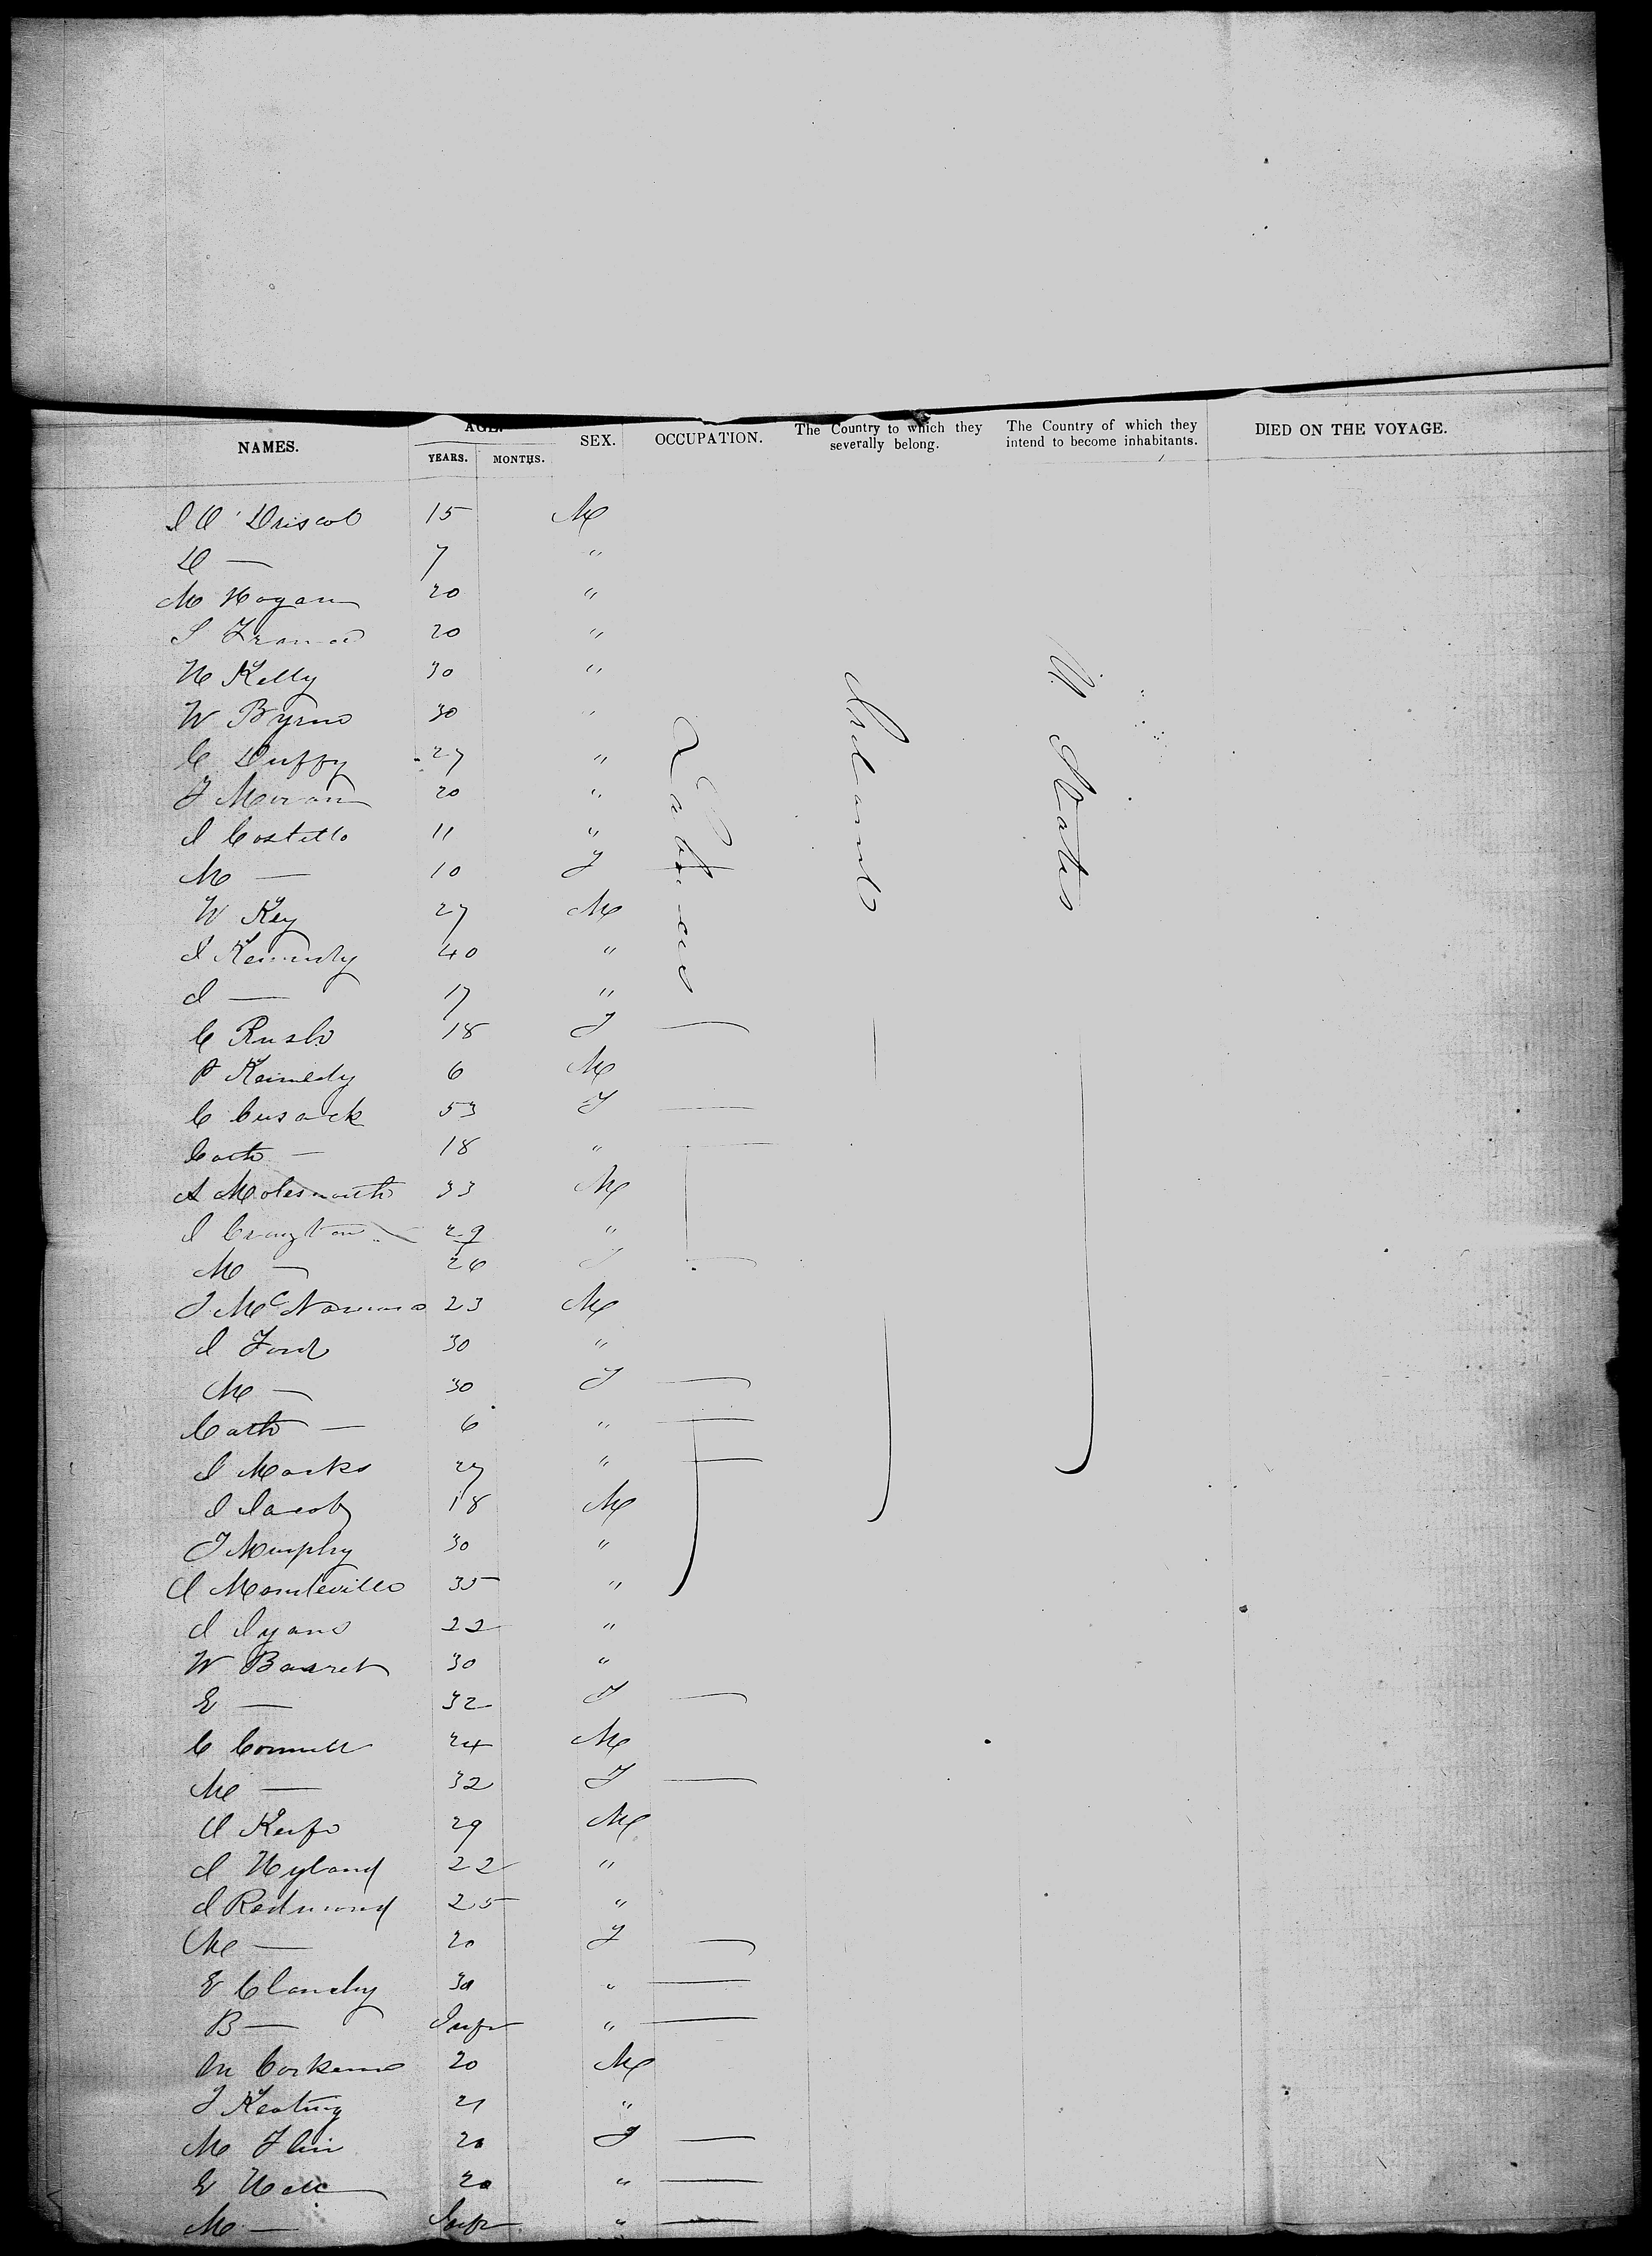 NAMES. AGE. SEX. OCCUPATION. The Country to which they severally belong. The Country of which they intend to become inhabitants. DIED ON THE VOYAGE.
YEARS. MONTHS.
J O'Driscol 15 M
D — 7 "
M Hogan 20 "
S 20 "
H Kelly 30 "
W Byrne 30 "
C Duffy 27 "
T Moran 20 "
J Costello 11 "
M — 10 F
W Key 27 M
J Kennedy 40 "
J — 17 "
C Rush 18 F —
P Kennedy 6 M
C Cusack 53 F —
Cath — 18 " —
A Molesworth 33 M
J 29 "
M — 26 F —
J McNamara 23 M
J Ford 30 "
M — 30 F —
Cath — 6 " —
J Marks 27 " —
J Jacob 18 M
J Murphy 30 "
J Mandeville 35 "
J 22 "
W Barret 30 "
E — 32 F —
C Connell 24 M
M — 32 F —
O Keefe 29 M
J Hyland 22 "
J Redmond 25 "
M — 20 F —
E Clanchy 30 " —
B — Inft " —
M 20 M
J Keating 21 "
M Flin 20 F —
E 20 " —
M — Inft " —
Laborers
Ireland
U. States